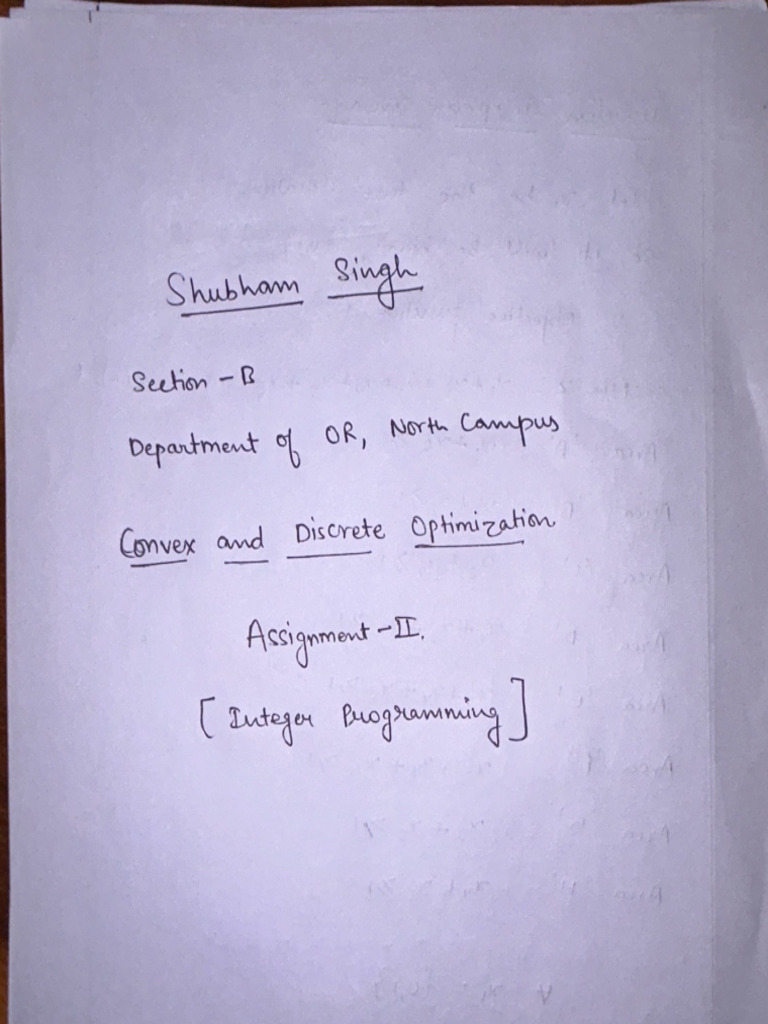 Shubham Singh
Section - B
Department of OR, North Campus
Convex and Discrete Optimization
Assignment - II.
[ Integer Programming ]